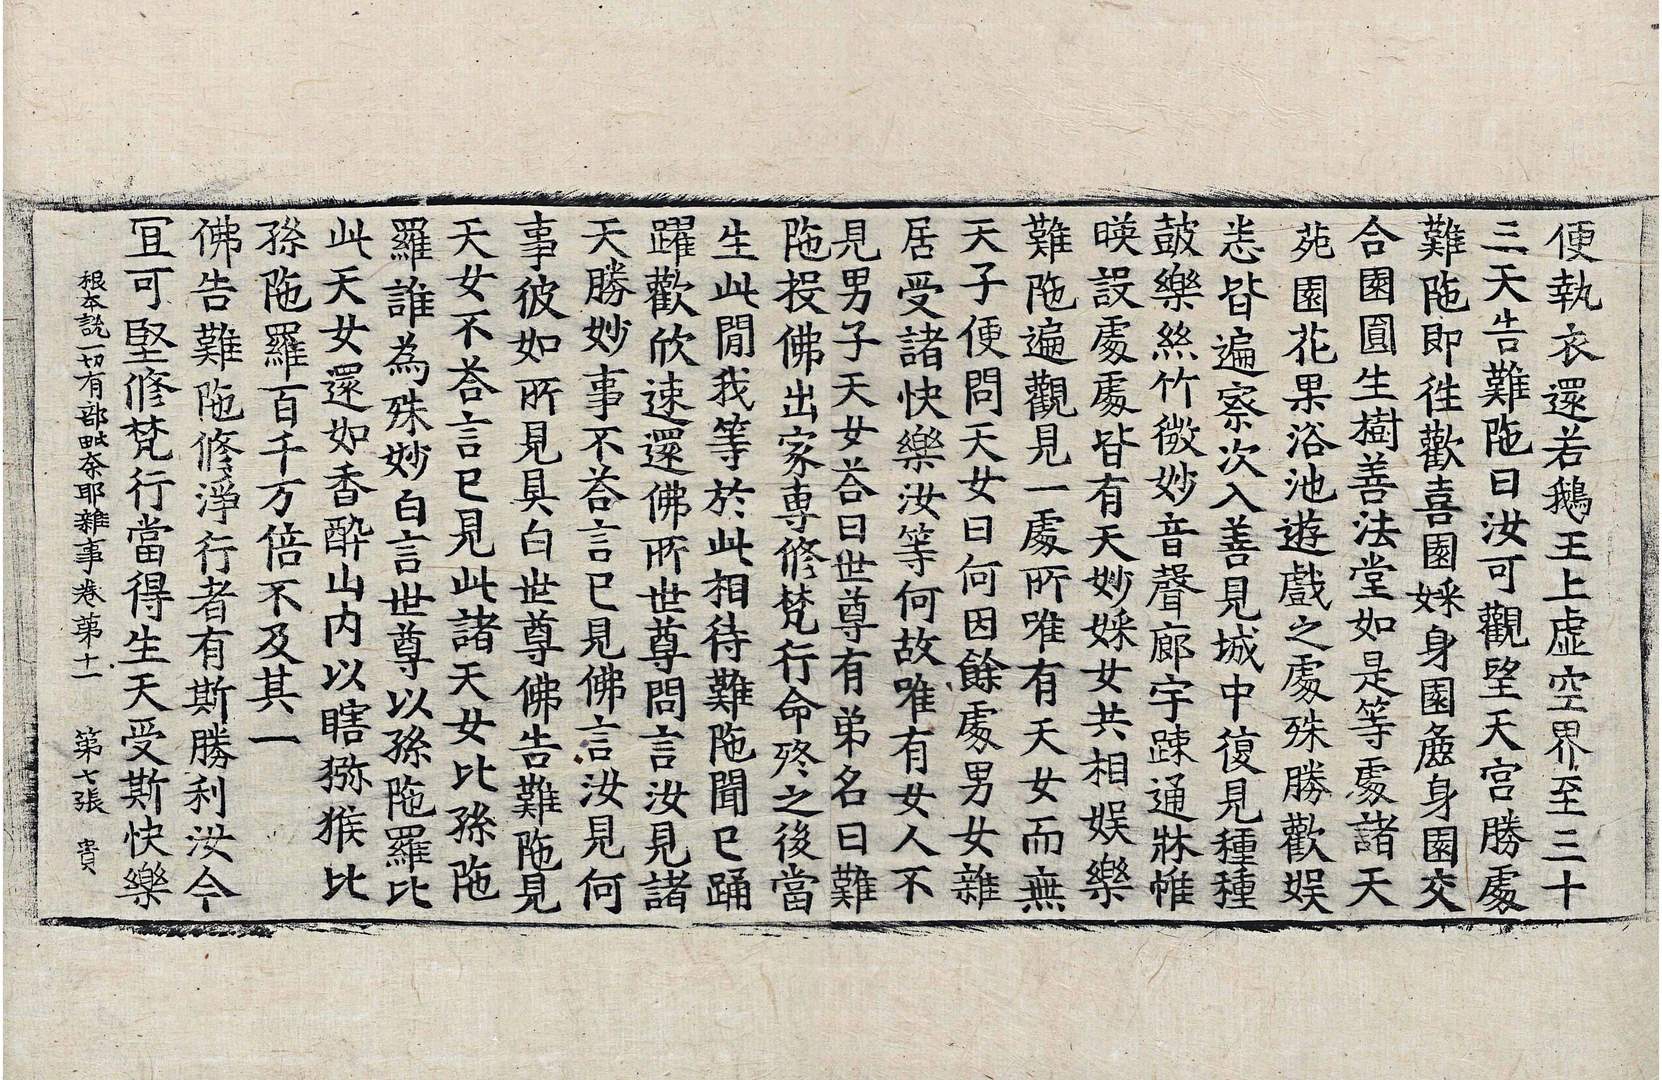 便執衣還若鵝王上虛空界至三十
三天告難陁曰汝可觀望天宮勝處
難陁即徃歡喜園婇身園麁身園交
合園圓生樹善法堂如是等處諸天
苑園花果浴池遊戲之處殊勝歡娛
悉皆遍察次入善見城中復見種種
鼓樂絲竹微妙音聲廊宇踈通牀帷
暎設處處皆有天妙婇女共相娛樂
難陁遍觀見一處所唯有天女而無
天子便問天女曰何因餘處男女雜
居受諸快樂汝等何故唯有女人不
見男子天女荅曰世尊有弟名曰難
陁投佛出家專修梵行命終之後當
生此閒我等於此相待難陁聞已踊
躍歡欣速還佛所世尊問言汝見諸
天勝妙事不荅言已見佛言汝見何
事彼如所見具白世尊佛告難陁見
天女不荅言已見此諸天女比孫陁
羅誰為殊妙白言世尊以孫陁羅比
此天女還如香醉山內以瞎獼猴比
孫陁羅百千万倍不及其一
佛告難陁修淨行者有斯勝利汝今
宜可堅修梵行當得生天受斯快樂
根本說一切有部毗奈耶雜事卷第十一 第七張 貴